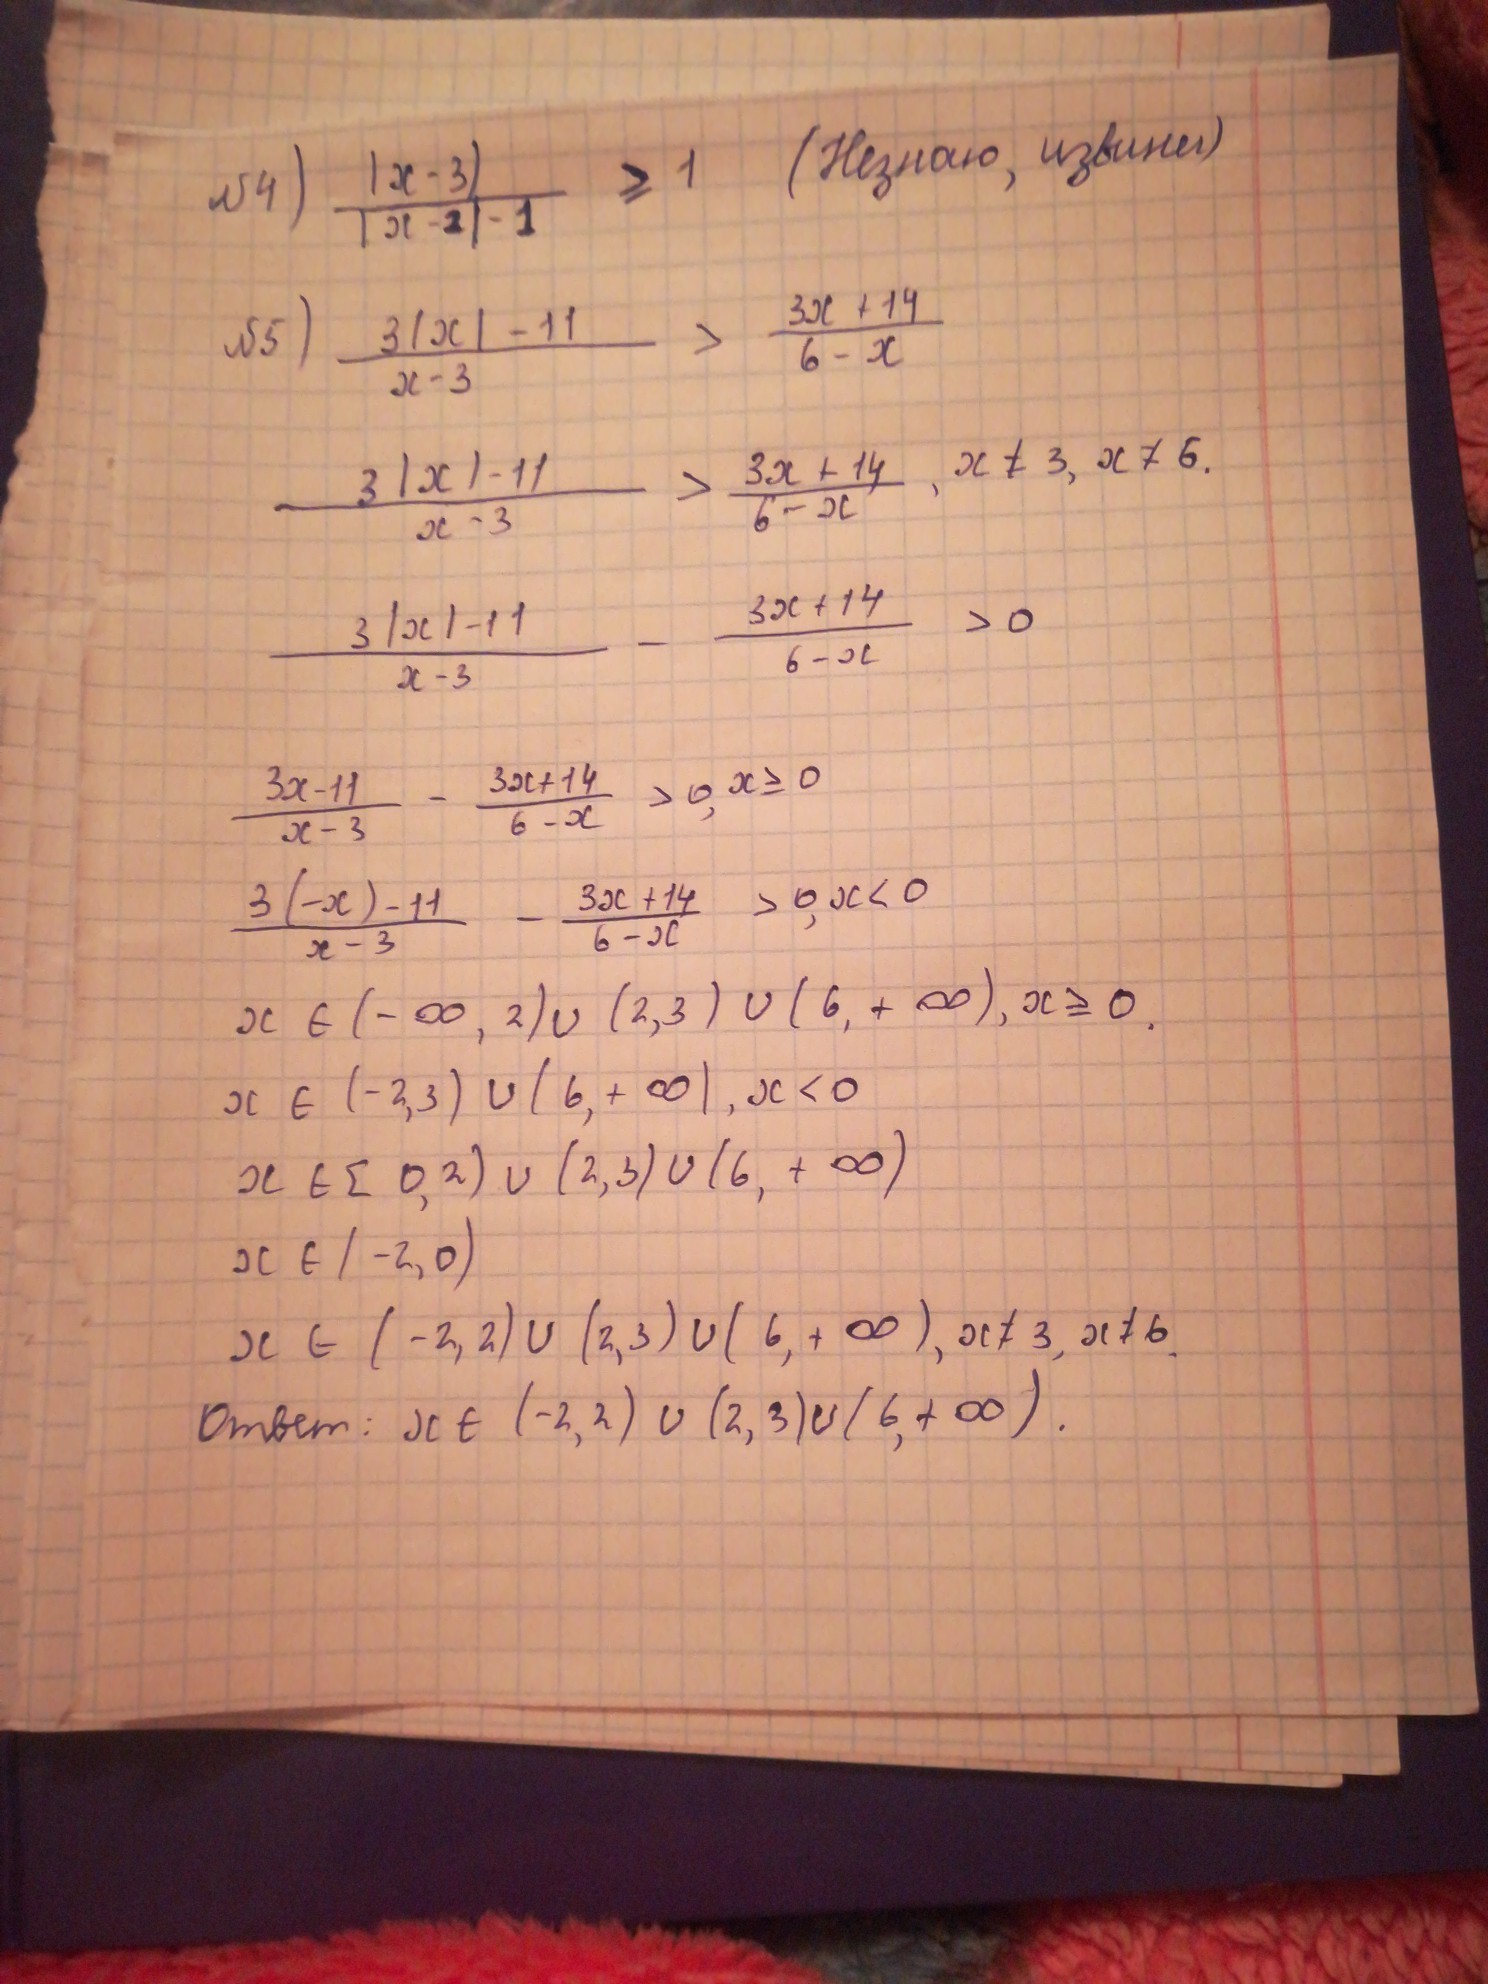 №4) |x-3| / |x-2|-1 ⩾ 1 (Незнаю, извини)
№5) 3|x|-11 / x-3 > 3x+14 / 6-x
3|x|-11 / x-3 > 3x+14 / 6-x , x≠3, x≠6.
3|x|-11 / x-3 - 3x+14 / 6-x >0
3x-11 / x-3 - 3x+14 / 6-x >0, x≥0
3(-x)-11 / x-3 - 3x+14 / 6-x >0, x<0
x∈(-∞, 2)∪(2,3)∪(6,+∞), x≥0.
x∈(-2,3)∪(6,+∞), x<0
x∈[0,2)∪(2,3)∪(6,+∞)
x∈(-2,0)
x∈(-2,2)∪(2,3)∪(6,+∞), x≠3, x≠6.
Ответ: x∈(-2,2)∪(2,3)∪(6,+∞).